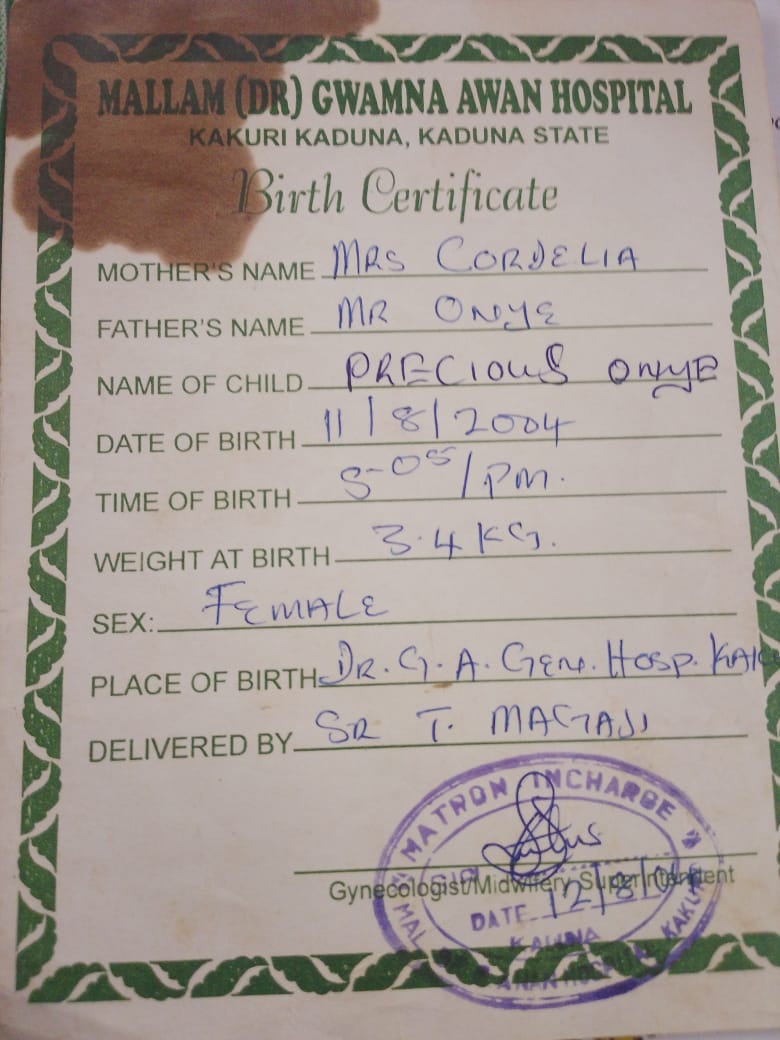 MALLAM (DR) GWAMNA AWAN HOSPITAL
KAKURI KADUNA, KADUNA STATE
Birth Certificate
MOTHER'S NAME MRS CORDELIA
FATHER'S NAME MR ONYE
NAME OF CHILD PRECIOUS ONYE
DATE OF BIRTH 11/8/2004
TIME OF BIRTH 5-05/PM.
WEIGHT AT BIRTH 3.4KG.
SEX: FEMALE
PLACE OF BIRTH DR. G. A. GEN. HOSP.
DELIVERED BY SR T. MAGAJI
MATRON INCHARGE
Gynecologist/Midwifery Superintendent
DATE 12/8/04
KADUNA
HOSPITAL